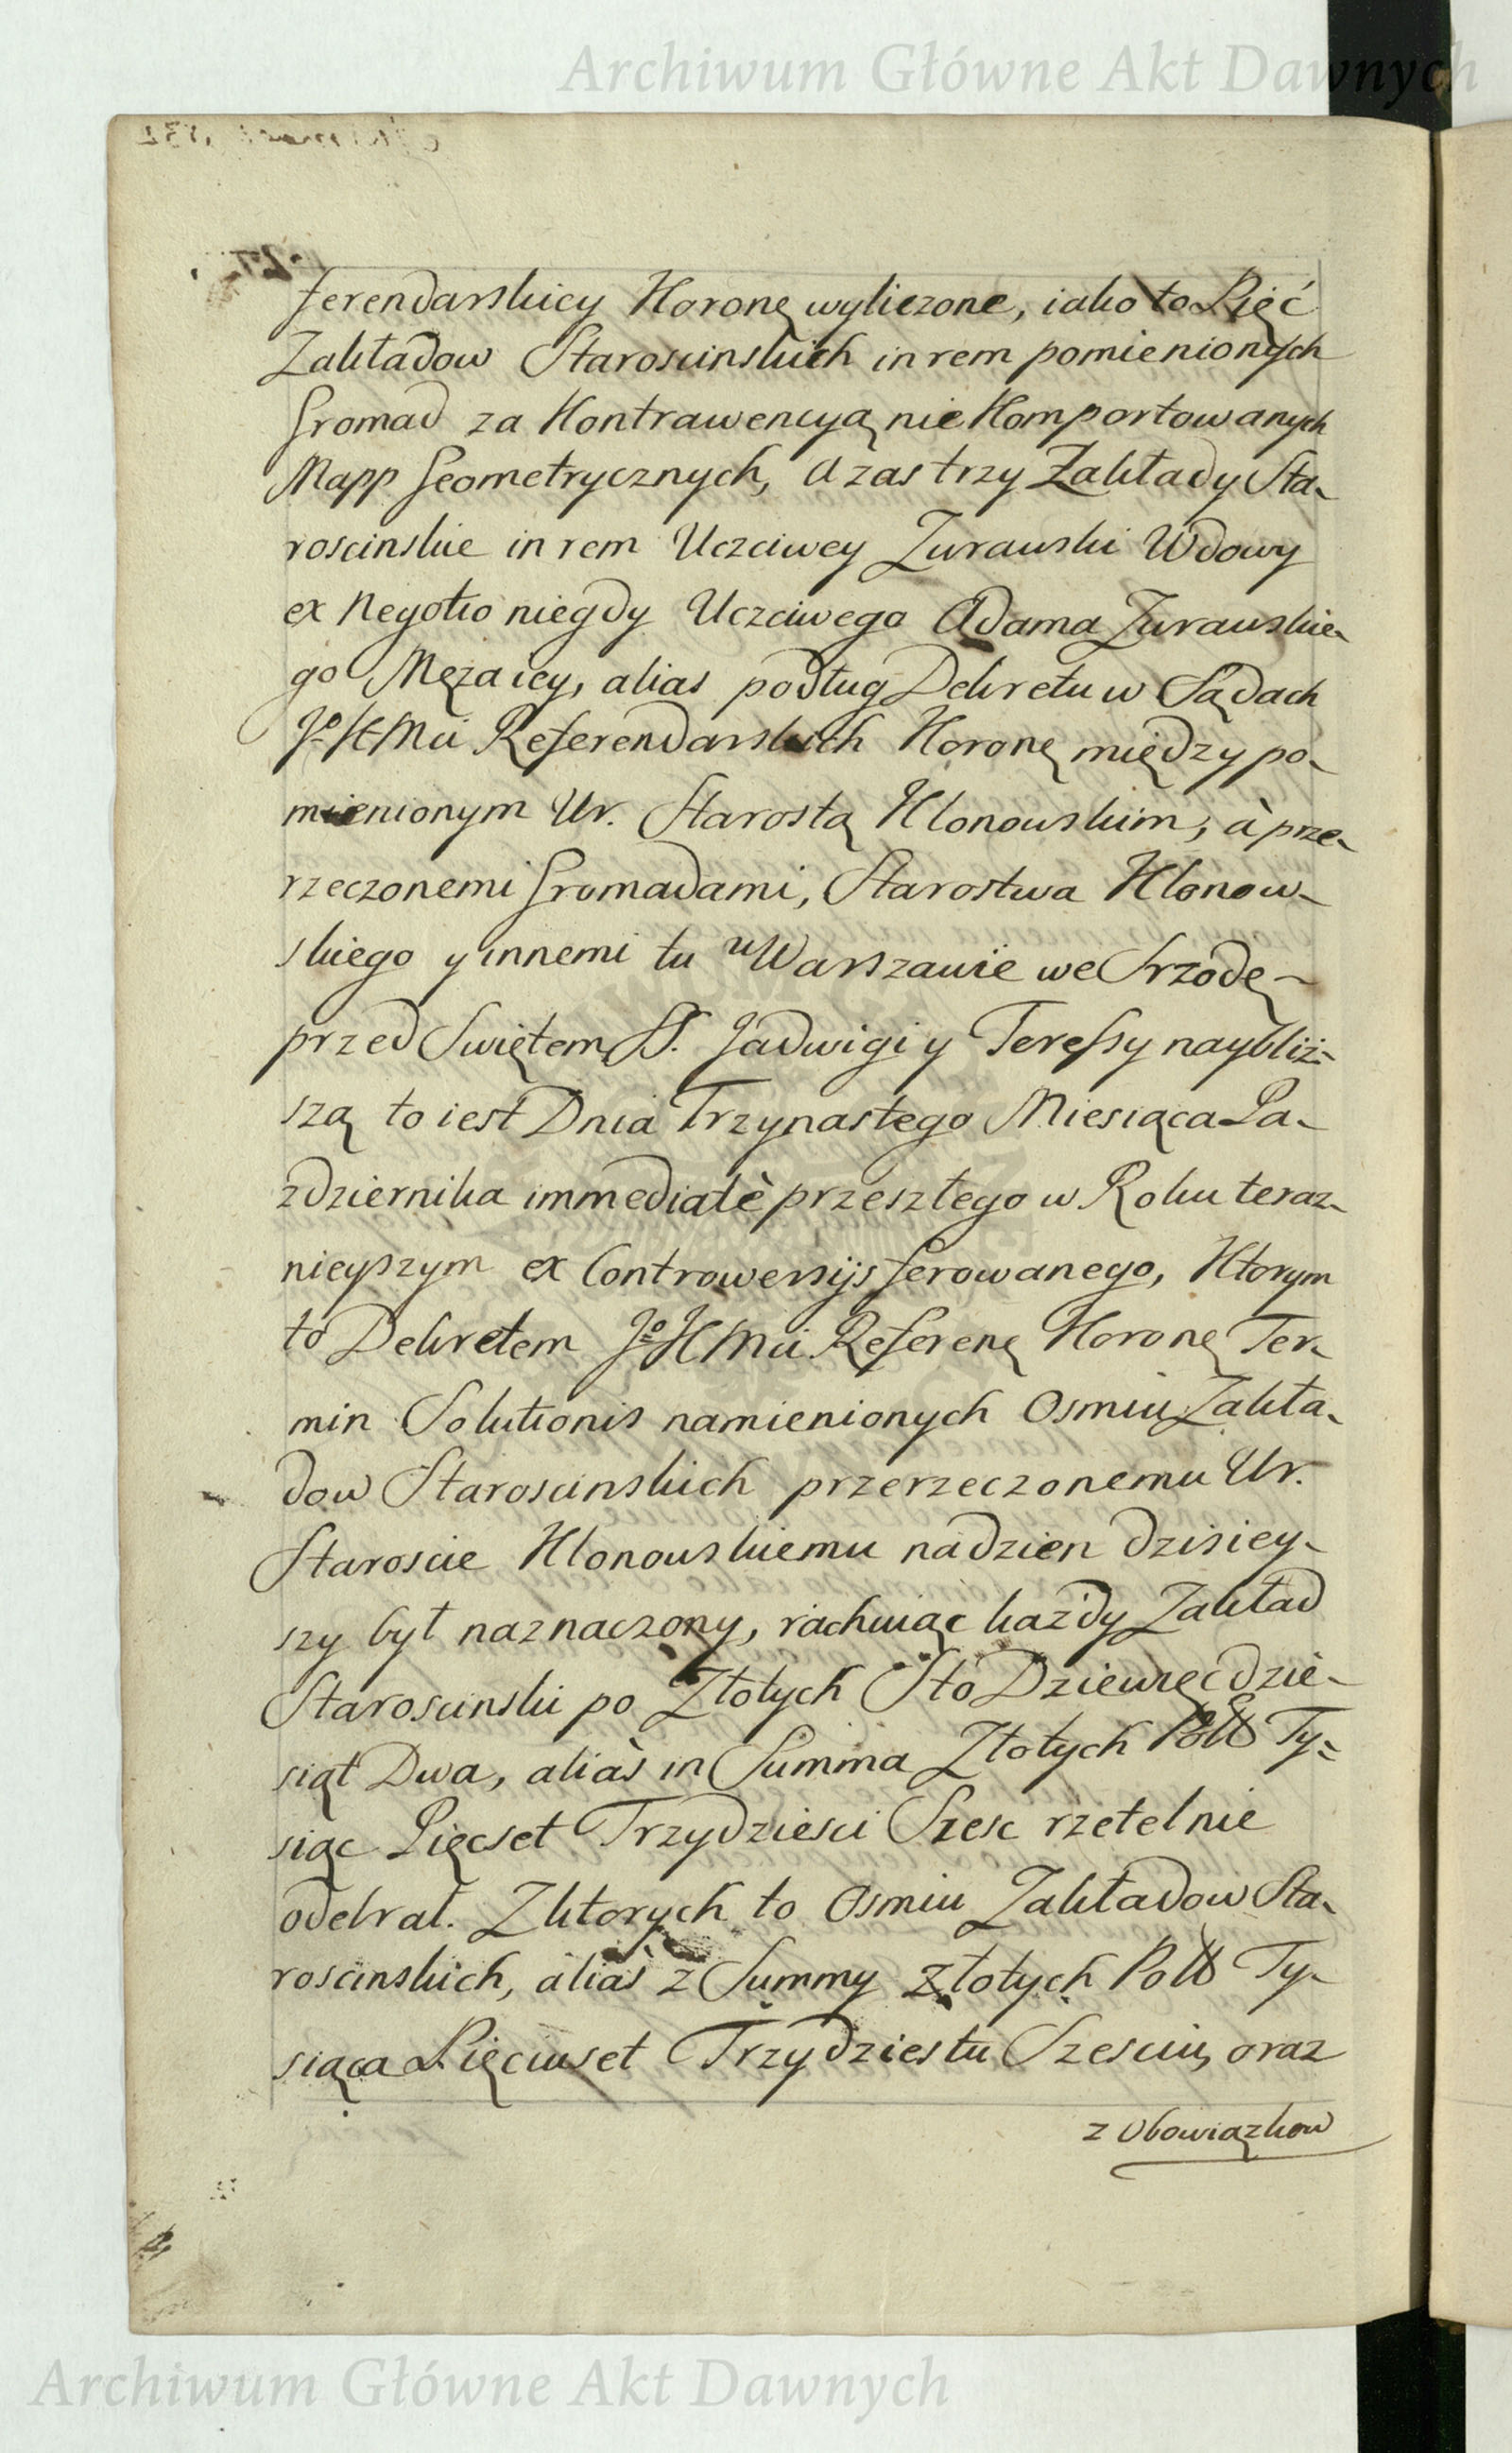 Archiwum Główne Akt Dawnych
ferendarskiey Koronę wyliczone, iako to Pięć
Zakładow Starościnskich in rem pomienionych
Gromad za Kontrawencyą nie Komportowanych
Mapp Geometrycznych, a zas trzy Zakłady Sta-
roscinskie in rem Uczciwey Zurawski Wdowy
ex Negotio niegdy Uczciwego Adama Zurawskie-
go Męza iey, alias podług Dekretu w Sądach
JoKMci Referendarskich Koronę między po-
mienionym Ur. Starostą Klonowskim, à prze-
rzeczonemi Gromadami, Starostwa Klonow-
skiego y innemi tu w Warszawie we Srzodę
przed Swiętem SS. Jadwigi y Teressy naybliż-
szą to iest Dnia Trzynastego Miesiąca Pa-
zdziernika immediatè przeszłego w Roku teraz-
nieyszym ex Controwersijs ferowanego, Ktorym
to Dekretem JoKMci Referenę Koronę Ter-
min Solutionis namienionych Osmiu Zakła-
dow Staroscinskich przerzeczonemu Ur.
Staroscie Klonowskiemu na dzien dzisiey-
szy był naznaczony, rachuiąc każdy Zakład
Staroscinski po Złotych Sto Dziewięcdzie-
siąt Dwa, aliàs in Summa Złotych Polł Ty-
siąc Pięcset Trzydziesci Szesc rzetelnie
odebrał. Z ktorych to Osmiu Zakładow Sta-
roscinskich, aliàs z Summy Złotych Polł Ty-
siąca Pięciuset Trzydziestu Szesciu, oraz
z Obowiązkow
Archiwum Główne Akt Dawnych